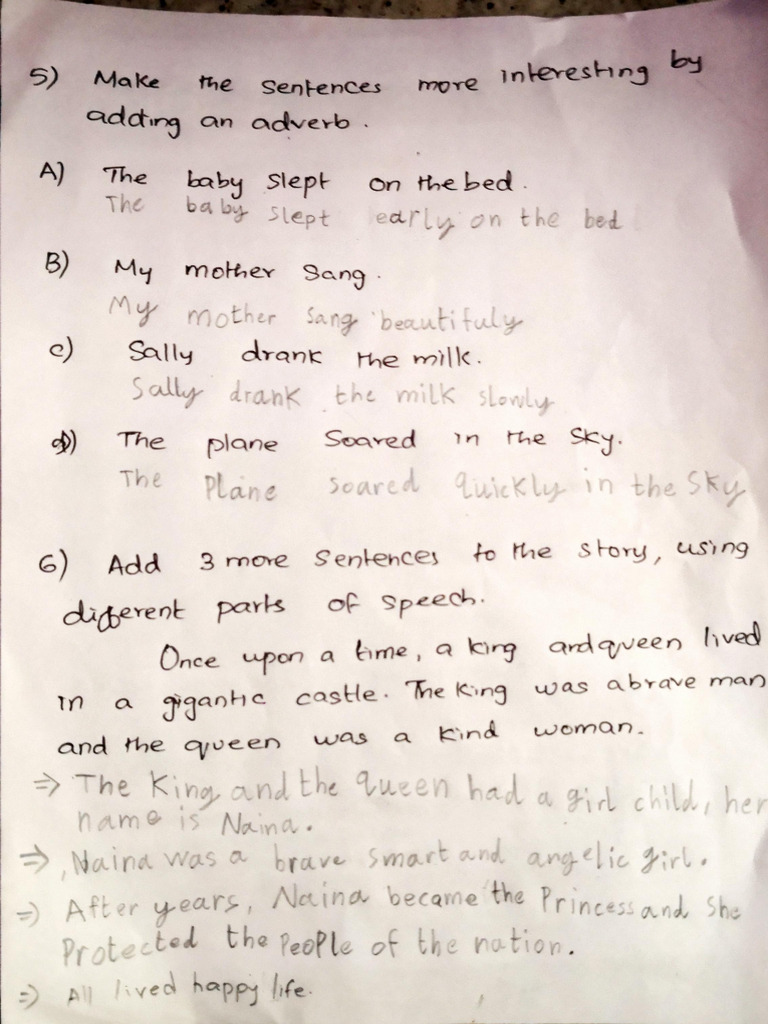 5) Make the sentences more interesting by
adding an adverb.
A) The baby slept on the bed.
The baby slept early on the bed
B) My mother sang.
My mother sang beautifuly
c) Sally drank the milk.
Sally drank the milk slowly
d) The plane soared in the sky.
The Plane soared quickly in the Sky
6) Add 3 more sentences to the story, using
different parts of speech.
Once upon a time, a king and queen lived
in a gigantic castle. The king was a brave man
and the queen was a kind woman.
⇒ The King and the queen had a girl child, her
name is Naina.
⇒ Naina was a brave smart and angelic girl.
⇒ After years, Naina became the Princess and She
Protected the PeoPle of the nation.
⇒ All lived happy life.